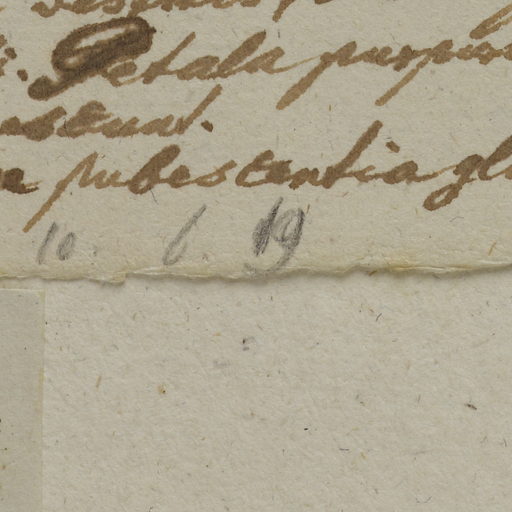 . Petala purpur
scunt.
pubescentia gl
10. 6. 19